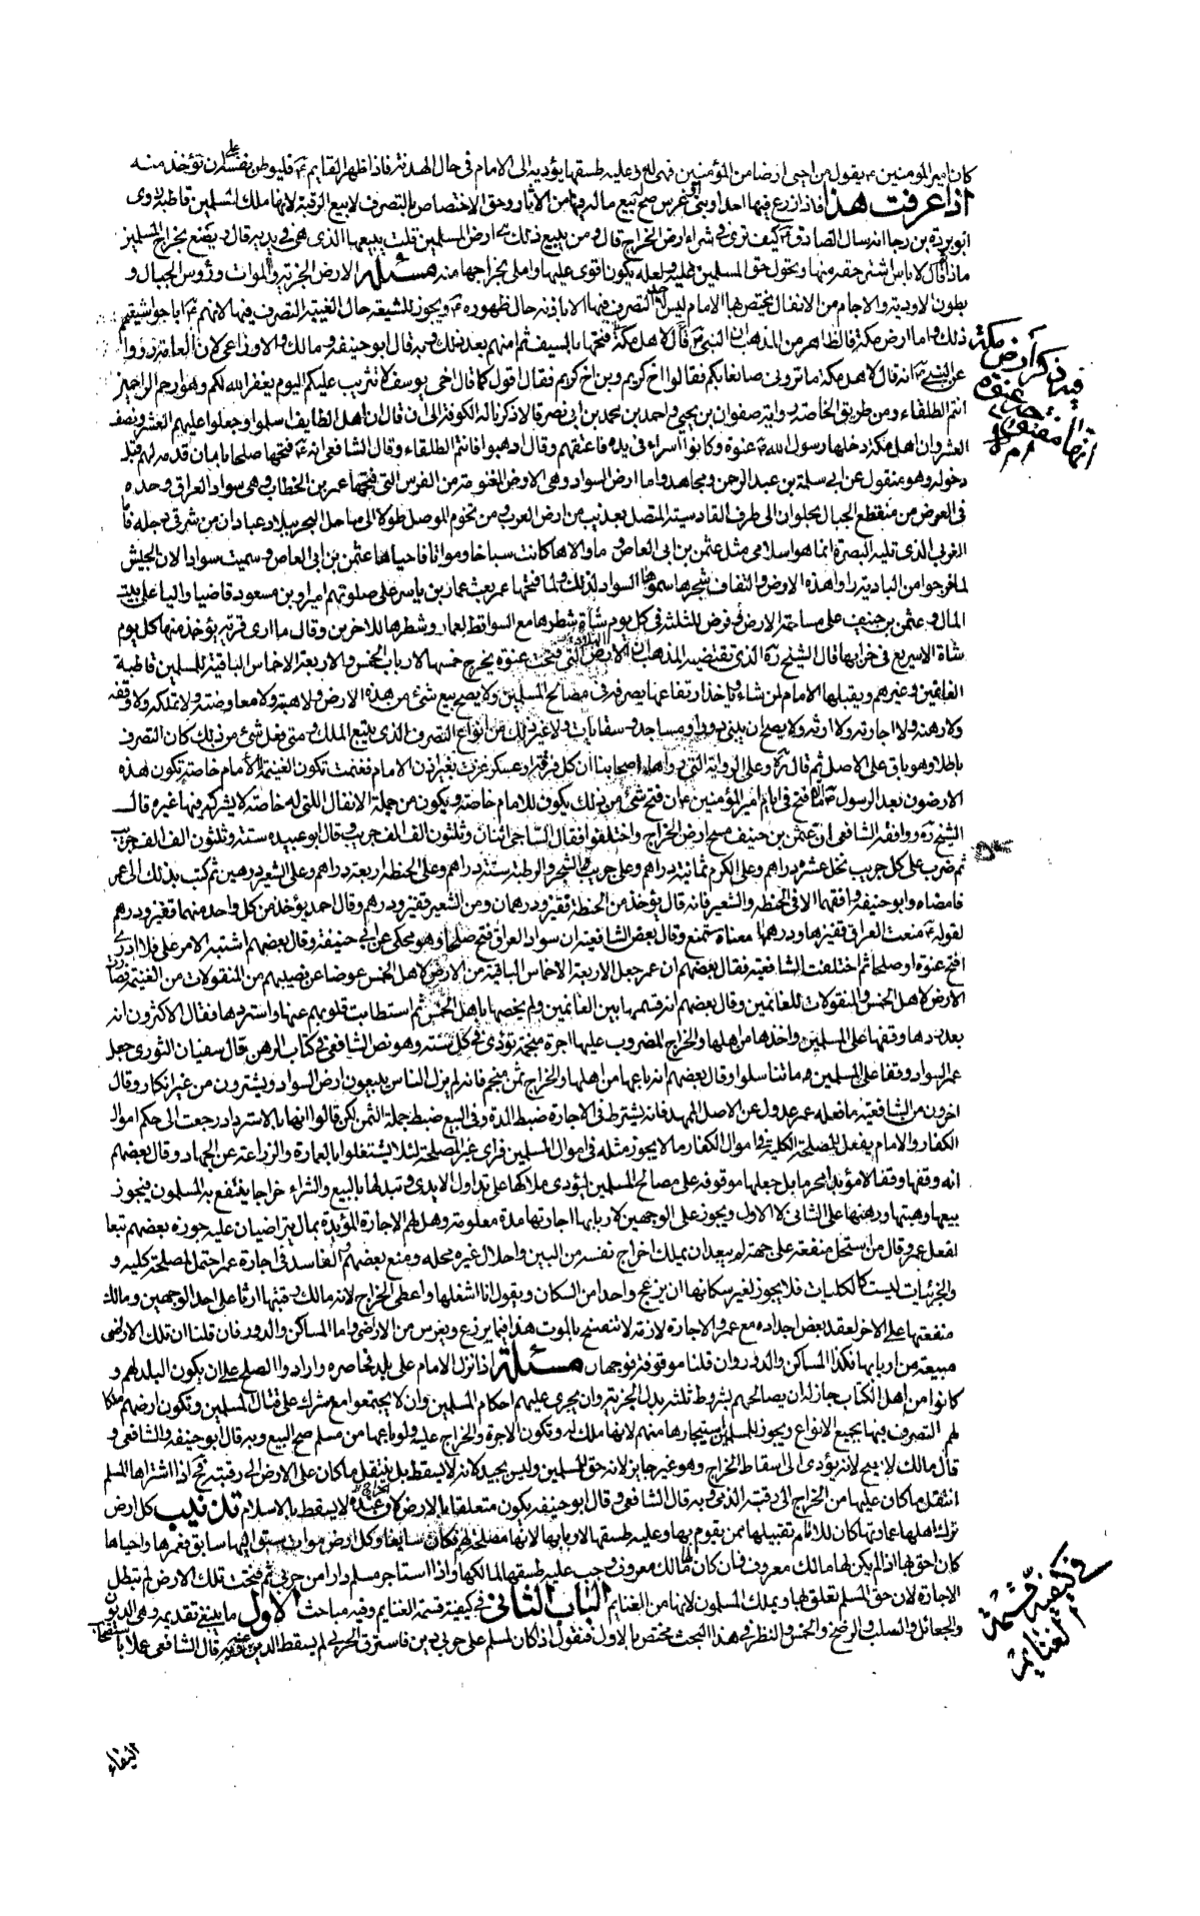 كان امير المؤمنين ع يقول من احيى ارضا من المؤمنين فهي له وعليه طسقها يؤديه الى الامام في حال الهدنة فاذا ظهر القايم ع فليوطن نفسه على ان تؤخذ منه
اذا عرفت هذا فاذا زرع فيها احد او بنى او غرس صح بيع ماله فيها من الاثار وحق الاختصاص بالتصرف لا بيع الرقبة لانها ملك المسلمين قاطبة روى
ابو بردة بن رجا انه سال الصادق ع كيف ترى في شراء ارض الخراج قال ومن يبيع ذلك هي ارض المسلمين قلت يبيعها الذي هي في يديه قال ويصنع بخراج المسلمين
ماذا ثم قال لا باس اشترى حقه منها ويحول حق المسلمين عليه ولعله يكون اقوى عليها واملى بخراجها منه مسئلة الارض الخربة والموات ورؤس الجبال و
بطون الاودية والاجام من الانفال يختص بها الامام ليس لاحد التصرف فيها الا باذنه حال ظهوره ع ويجوز للشيعة حال الغيبة التصرف فيها لانهم ع اباحوا شيعتهم
ذلك واما ارض مكة فالظاهر من المذهب ان النبي ص فتحها بالسيف ثم امنهم بعد ذلك وبه قال ابو حنيفة ومالك والاوزاعي لان العامة رووا
عن النبي ص انه قال لاهل مكة ما تروني صانعا بكم فقالوا اخ كريم وبن اخ كريم فقال اقول كما قال اخي يوسف لا تثريب عليكم اليوم يغفر الله لكم وهو ارحم الراحمين
انتم الطلقاء ومن طريق الخاصة رواية صفوان بن يحيى واحمد بن محمد بن ابي نصر قالا ذكرنا له الكوفة الى ان قال ان اهل الطايف اسلموا وجعلوا عليهم العشر ونصف
العشر وان اهل مكة دخلها رسول الله ص عنوة وكانوا اسراء في يده فاعتقهم وقال اذهبوا فانتم الطلقاء وقال الشافعي انه ع فتحها صلحا بامان قدمه لهم قبل
دخوله وهو منقول عن ابي سلمة بن عبد الرحمن ومجاهد واما ارض السواد وهي الارض المغنومة من الفرس التي فتحها عمر بن الخطاب وهي سواد العراق وحده
في العرض من منقطع الجبال بحلوان الى طرف القادسية المتصل بعذيب من ارض العرب ومن تخوم الموصل طولا الى ساحل البحر ببلاد عبادان من شرقي دجلة فاما
الغربي الذي تليه البصرة انما هو اسلامي مثل عثمن بن ابي العاص وما والاها كانت سباخا ومواتا فاحياها عثمن بن ابي العاص وسميت سوادا لان الجيش
لما خرجوا من البادية راوا هذه الارض والتفاف شجرها سموها السواد لذلك ولما فتحها عمر بعث عمار بن ياسر على صلوتهم اميرا وبن مسعود قاضيا واليا على بيت
المال وعثمن بن حنيف على مساحة الارض وفرض للثلثة في كل يوم شاة شطرها مع السواقط لعمار وشطرها للاخرين وقال ما ارى قرية يؤخذ منها كل يوم
شاة الا سريع في خرابها قال الشيخ ره الذي تقتضيه المذهب ان الارض التي فتحت عنوة يخرج خمسها لارباب الخمس والاربعة الاخماس الباقية للمسلمين قاطبة
الغانمين وغيرهم ويقبلها الامام لمن شاء وياخذ ارتفاعها يصرفه في مصالح المسلمين ولا يصح بيع شئ من هذه الارض ولا هبته ولا معاوضته ولا تملكه ولا وقفه
ولا رهنه ولا اجارته ولا ارثه ولا يصح ان يبنى دورا ومساجد وسقايات ولا غير ذلك من انواع التصرف الذي يتبع الملك ومتى فعل شئ من ذلك كان التصرف
باطلا وهو باق على الاصل ثم قال ره وعلى الرواية التي رواها اصحابنا ان كل فرقة او عسكر غزت بغير اذن الامام فغنمت تكون الغنيمة للامام خاصة تكون هذه
الارضون بعد الرسول ص الا ما فتح في ايام امير المؤمنين ع ان فتح شئ من ذلك يكون للامام خاصة ويكون من جملة الانفال اللتي له خاصة لا يشركه فيها غيره قال
الشيخ ره ووافقه الشافعي ان عثمن بن حنيف مسح ارض الخراج واختلفوا فقال الساجي اثنان وثلثون الف الف جريب وقال ابو عبيد ستة وثلثون الف الف جريب
ثم ضرب على كل جريب نخل عشرة دراهم وعلى الكرم ثمانية دراهم وعلى جريب الشجر والرطبة ستة دراهم وعلى الحنطة اربعة دراهم وعلى الشعير درهمين ثم كتب بذلك الى عمر
فامضاه وابو حنيفة وافقهما الا في الحنطة والشعير فانه قال يؤخذ من الحنطة قفيز ودرهمان ومن الشعير قفيز ودرهم وقال احمد يؤخذ من كل واحد منهما قفيز ودرهم
لقوله ع منعت العراق قفيزها ودرهمها معناه ستمنع وقال بعض الشافعية ان سواد العراق فتح صلحا وهو محكي عن ابي حنيفة وقال بعضهم اشتبه الامر علي فلا ادري
افتح عنوة او صلحا ثم اختلفت الشافعية فقال بعضهم ان عمر جعل الاربعة الاخماس الباقية من الارض لاهل الخمس عوضا عن نصيبهم من المنقولات من الغنيمة فصارت
الارض لاهل الخمس والمنقولات للغانمين وقال بعضهم انه قسمها بين الغانمين ولم يخصها باهل الخمس ثم استطابت قلوبهم عنها واستردها فقال الاكثرون انه
بعد ردها وقفها على المسلمين واخذها من اهلها والخراج المضروب عليها اجرة منجمة تؤدى في كل سنة وهو نص الشافعي في كتاب الرهن قال سفيان الثوري جعل
عمر السواد وقفا على المسلمين ما تناسلوا وقال بعضهم انه باعها من اهلها والخراج ثمن منجم فانه لم يزل الناس يبيعون ارض السواد ويشترون من غير انكار وقال
اخرون من الشافعية ما فعله عمر عدول عن الاصل الممهد فانه يشترط في الاجارة ضبط المدة وفي البيع ضبط جملة الثمن لكن قالوا انها بالاسترداد رجعت الى حكم اموال
الكفار والامام يفعل للمصلحة الكلية في اموال الكفار ما لا يجوز مثله في اموال المسلمين فراى عمر المصلحة لئلا يشتغلوا بالعمارة والزراعة عن الجهاد وقال بعضهم
انه وقفها وقفا لا مؤبدا محرما بل جعلها موقوفة على مصالح المسلمين ليؤدى ملاكها على تداول الايدي وتبدلها بالبيع والشراء خراجا ينتفع به المسلمون فيجوز
بيعها وهبتها ورهنها على الثاني لا الاول ويجوز على الوجهين لاربابها اجارتها مدة معلومة وهل لهم الاجارة المؤبدة بمال يتراضيان عليه جوزه بعضهم تبعا
لفعل عمر وقال من استحل منفعة على جهة لم يبعد ان يملك اخراج نفسه من البين واحلال غيره محله ومنع بعضهم والفاسد في اجارة عمر احتمل لمصلحة كلية و
والجزئيات ليست كالكليات فلا يجوز لغير سكانها ان يزعج واحدا من السكان ويقول انا اشغلها واعطي الخراج لانه مالك رقبتها ارثا على احد الوجهين ومالك
منفعتها على الاخر لعقد بعض اجداده مع عمر والاجارة لازمة لا تنفسخ بالموت هذا فيما يزرع ويغرس من الاراضي واما المساكن والدور فان قلنا ان تلك الاراضي
مبيعة من اربابها فكذا المساكن والدور وان قلنا موقوفة فوجهان مسئلة اذا نزل الامام على بلد فحاصره وارادوا الصلح على ان يكون البلد لهم و
كانوا من اهل الكتاب جاز له ان يصالحهم بشروط ثلثة بذل الجزية وان يجري عليهم احكام المسلمين وان لا يجتمعوا مع مشرك على قتال المسلمين وتكون ارضهم ملكا
لهم التصرف فيها بجميع الانواع ويجوز للمسلم استيجارها منهم لانها ملك له وتكون الاجرة والخراج عليه ولو باعها من مسلم صح البيع وبه قال ابو حنيفة والشافعي و
قال مالك لا يبيح لانه يؤدى الى اسقاط الخراج وهو غير جايز لانه حق للمسلمين وليس بجيد لانه لا يسقط بل ينتقل ما كان على الارض الى رقبته ثم اذا اشتراها المسلم
انتقل ما كان عليها من الخراج الى رقبة الذمي وبه قال الشافعي وقال ابو حنيفة يكون متعلقا بالارض لان الخراج عنده لا يسقط بالاسلام تذنيب كل ارض
ترك اهلها عمارتها كان للامام تقبيلها ممن يقوم بها وعليه طسقها لاربابها لانها مصلحة لهم فكان سايغا وكل ارض موات سبق اليها سابق فعمرها واحياها
كان احق بها اذا لم يكن لها مالك معروف فان كان لها مالك معروف وجب عليه طسقها لمالكها واذا استاجر مسلم دارا من حربي ثم فتحت تلك الارض لم تبطل
الاجارة لان حق المسلم تعلق بها ويملك المسلمون لانها من الغنايم الباب الثاني في كيفية قسمة الغنايم وفيه مباحث الاول ما ينبغي تقديمه وهي الديون
والجعائل والسلب والرضخ والخمس والنظر في هذا البحث مختص بالاول فنقول اذا كان لمسلم على حربي دين فاسترق الحربي لم يسقط الدين عنه وبه قال الشافعي عملا باستصحاب
البقاء
فيه ذكر أرض مكة
انها مفتوحة عنوة
ام لا
في كيفية قسمة
الغنايم